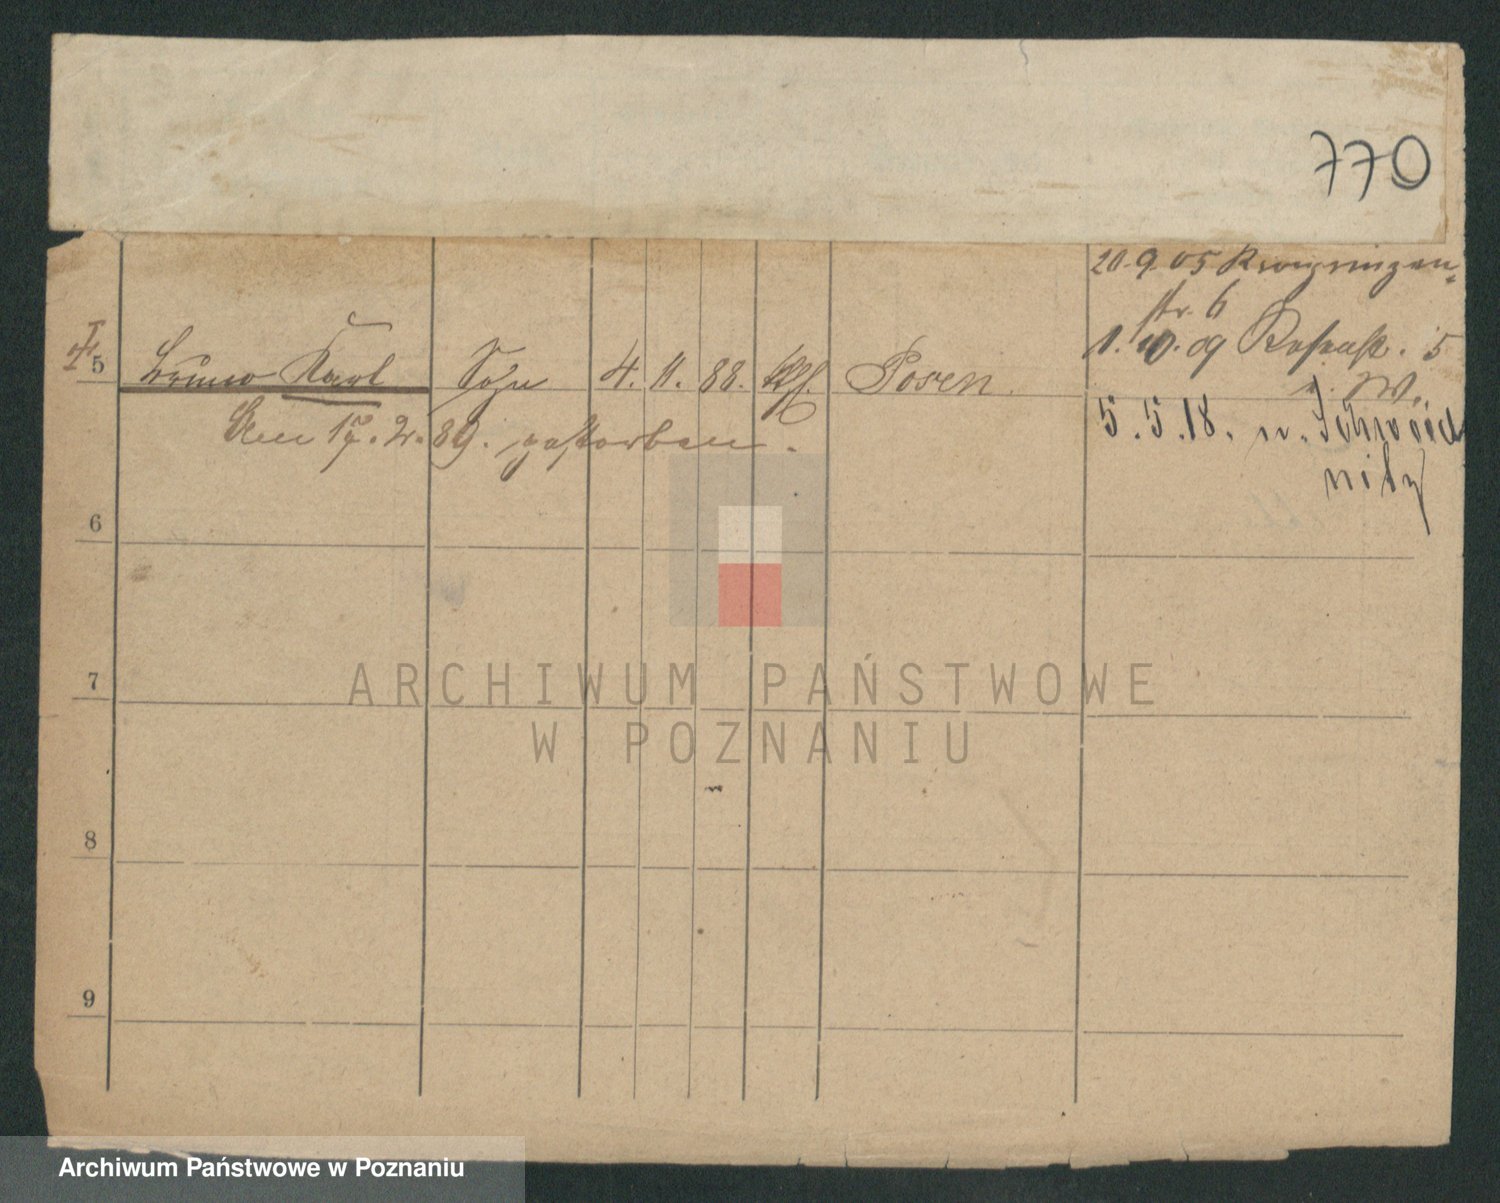 770
20.9.05
str. 6
1. 10. 09 5
5 Bruno Karl Sohn 4. 11. 88. Posen
n. W.
Am 17. 2. 89. gestorben.
5.5.18. n.
6
7
ARCHIWUM PAŃSTWOWE
W POZNANIU
8
9
Archiwum Państwowe w Poznaniu